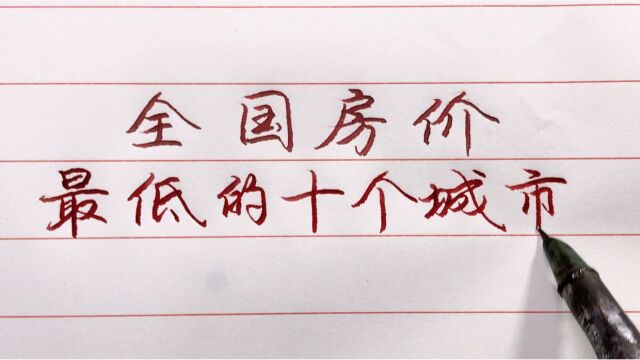 全国房价
最低的十个城市